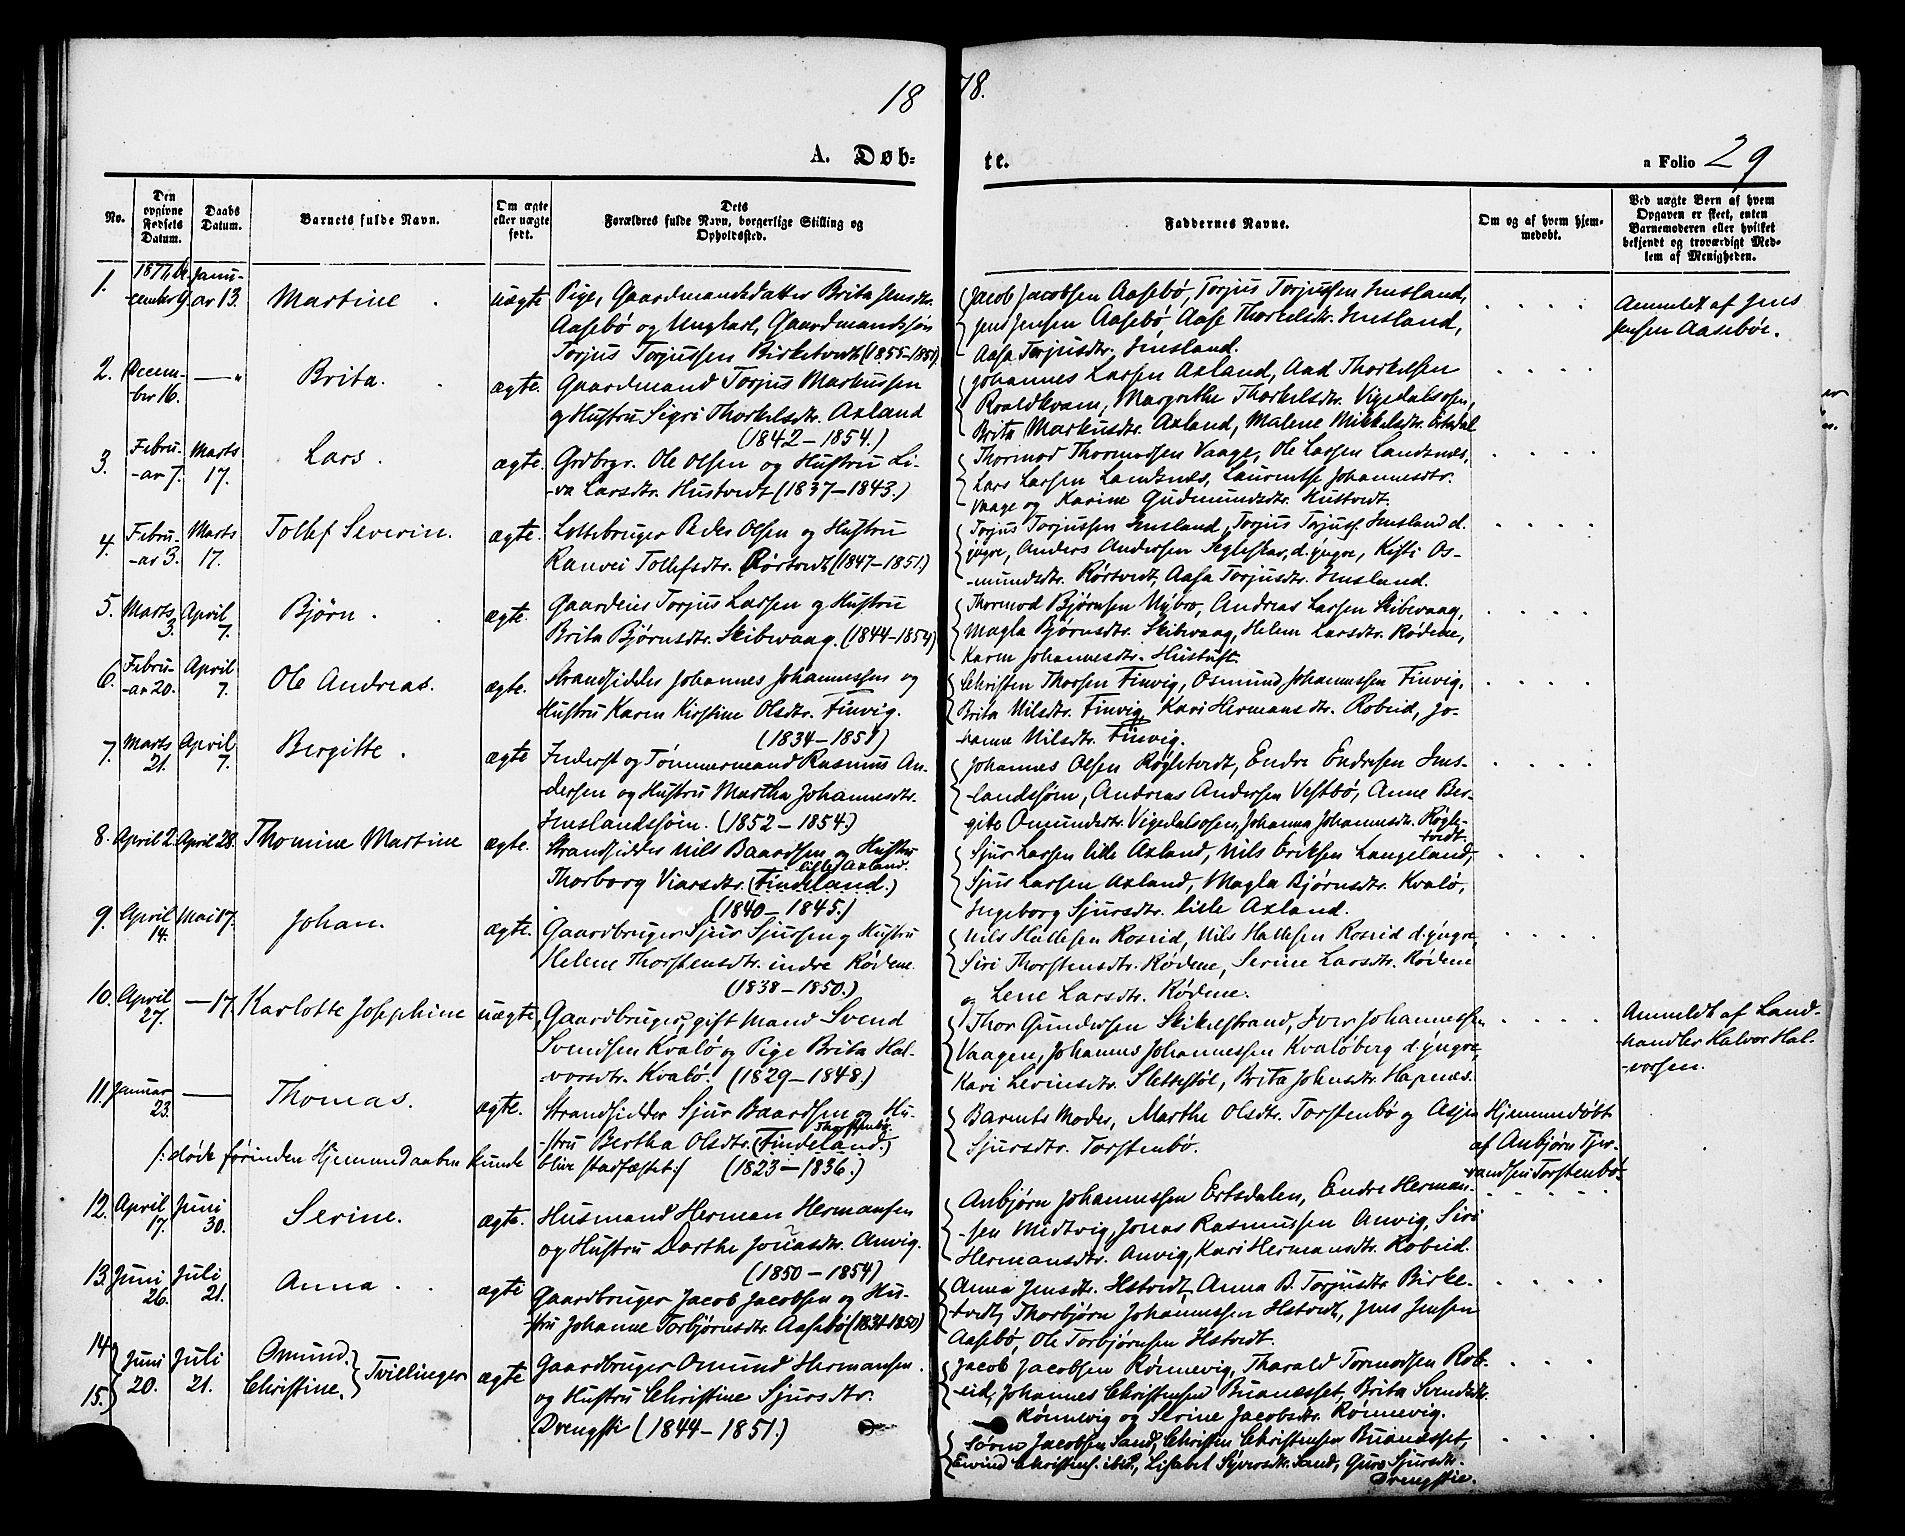 1878.
A. Døb-
te.
a Folio 29
No.
Den opgivne Fødsels Datum.
Daabs Datum.
Barnets fulde Navn.
Om ægte eller uægte født.
Dets
Forældres fulde Navn, borgerlige Stilling og
Opholdssted.
Faddernes Navne.
Om og af hvem hjem-
medøbt.
Ved uægte Børn af hvem
Opgaven er skeet, enten
Barnemoderen eller hvilket
bekjendt og troværdigt Med-
lem af Menigheden.
1. 1877, De-cember 9. Janu-ar 13. Martine uægte Pige, Gaardmandsdatter Brita Jensdtr.
Aasebö og Ungkarl, Gaardmandssön
Torjus Torjussen Birketvedt (1855-1851)
Jacob Jacobsen Aasebö, Torjus Torjussen Imsland,
Jens Jensen Aasebö, Aase Thorkelsdtr. Imsland,
Aasa Torjusdtr. Imsland.
Anmeldt af Jens
Jensen Aasebö.
2. Decem-ber 16. — " Brita. ægte. Gaardmand Torjus Markussen
og Hustru Sigri Thorkelsdtr. Axland
(1842-1854.)
Johannes Larsen Axland, Aad Thorkelsen
Roaldkvam, Margrethe Thorkelsdtr. Vigedalsosen,
Brita Markusdtr. Axland, Malene Mikkelsdtr. Ertsdal
3. Febru-ar 7. Marts 17. Lars. ægte. Grdbrgr. Ole Olsen og Hustru Li-
-va Larsdtr. Hustvedt (1837-1843.)
Thormod Thormodsen Vaage, Ole Larsen Landsnæs,
Lars Larsen Landsnæs, Laurentse Johannesdtr.
Vaage og Karine Gudmundsdtr. Hustvedt.
4. Febru-ar 3. Marts 17. Tollef Severin. ægte. Lottebruger Peder Olsen og Hustru
Ranvei Tollefsdtr. Rörtvedt (1847-1851.)
Torjus Torjussen Imsland, Torjus Torjuss. Imsland d.
yngre, Anders Andersen Tegleskar, d. yngre, Kisti Os-
-mundsdtr. Rörtvedt, Aasa Torjusdtr. Imsland.
5. Marts 3. April 7. Bjørn. ægte. Gaardeier Torjus Larsen og Hustru
Brita Bjørnsdtr. Skibevaag. (1844-1854)
Thormod Bjørnsen Nybro, Andreas Larsen Skibevaag,
Magla Bjørnsdtr. Skibevaag, Helene Larsdtr. Rødene,
Karen Johannesdtr. Hustuft.
6. Febru-ar 20. April 7. Ole Andreas. ægte. Strandsidder Johannes Johannessen og
Hustru Karen Kirstine Olsdtr. Finvig.
(1834-1851)
Christen Thorsen Finvig, Osmund Johannessen Finvig,
Brita Nilsdtr. Finvig, Kari Hermansdtr. Robeid, Jo-
-hanne Nilsdtr. Finvig.
7. Marts 21. April 7. Bergitte. ægte Inderst og Tømmermand Rasmus An-
-dersen og Hustru Martha Johannesdtr.
Imslandssjøen. (1852-1854.)
Johannes Olsen Røgletvedt, Endre Endresen Ims-
-landssjøen, Andreas Andersen Vestbø, Anne Ber-
gite Omundsdtr. Vigedalsosen, Johanna Johannesdtr. Røgle-
tvedt.
8. April 2. April 28. Thomine Martine ægte. Strandsidder Nils Baardsen og Hustru
Thorborg Viarsdtr. lille Axland. (Findeland.)
(1840-1845.)
Sjur Larsen lille Axland, Nils Eriksen Langeland,
Sjur Larsen Axland, Magla Bjørnsdtr. Kvalø,
Ingeborg Sjursdtr. lille Axland.
9. April 14. Mai 17. Johan. ægte. Gaardbruger Sjur Sjursen og Hustru
Helene Thorstensdtr. indre Rødene.
(1838-1850.)
Nils Hallesen Roseid, Nils Hallesen Roseid d. yngre,
Siri Thorstensdtr. Rødene, Serine Larsdtr. Rødene
og Lene Larsdtr. Rødene.
10. April 27. — 17. Karlotte Josephine uægte, Gaardbruger, gift Mand Svend
Svendsen Kvalø og Pige Brita Hal-
-vorsdtr. Kvalø. (1829-1848.)
Thor Gundersen Skikelstrand, Iver Johannessen
Vaagen, Johannes Johannessen Kvaløberg d. yngre,
Kari Levinsdtr. Sletsetöl, Brita Johnsdtr. Hapnes.
Anmeldt af Land-
-handler Halvor Hal-
-vorsen.
11. Januar 23. — Thomas. ægte. Strandsidder Sjur Baardsen og Hu-
-stru Bertha Olsdtr. Thorstenbö. (Findeland.)
(1823-1836.)
/: døde førinden Hjemmedaaben kunde
blive stadfæstet :/
Barnets Moder, Marthe Olsdtr. Torstenbø og Asjer
Sjursdtr. Torstenbø.
Hjemmedøbt
af Anbjørn Tjer-
-vandsen Torstenbø.
12. April 17. Juni 30. Serine. ægte. Husmand Herman Hermansen
og Hustru Dorthe Jonasdtr. Anvig.
(1850-1854)
Anbjørn Johannessen Ertsdalen, Endre Herman-
-sen Midtvig, Jonas Rasmussen Anvig, Siri
Hermansdtr. Anvig, Kari Hermansdtr. Robeid.
13. Juni 26. Juli 21. Anna ægte Gaardbruger Jacob Jacobsen og Hu-
-stru Johanne Torbjörnsdtr. Aasebö (1834-1850)
Anna Jensdtr. Hstvedt, Anna B. Torjusdtr Birke-
tvedt, Thorbjörn Johannessen Hstvedt, Jens Jensen
Aasebö, Ole Torbjörnsen Hstvedt.
14. 15. Juni 20. Juli 21. Omund. Christine. Tvillinger ægte Gaardbruger Omund Hermansen
og Hustru Christine Sjursdtr.
Drengstie (1844-1851.)
Jacob Jacobsen Rønnevig, Tharald Tormodsen Rob-
-eid, Johannes Christensen Buanæsset, Brita Svendsdtr.
Rønnevig og Serine Jacobsdtr. Rønnevig.
Sørn Jacobsen Sand, Christen Christensen Buanæsset,
Eivind Christens. ibid., Lisabet Syversdtr. Sand, Guro Sjursdtr.
Drengstie.